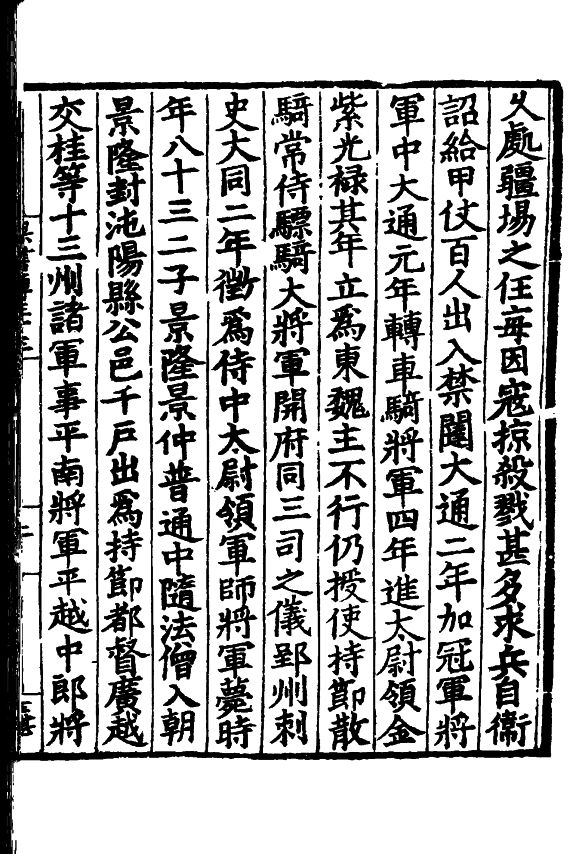 乆處疆場之任毎因寇掠殺戮甚多求兵自衞
詔給甲仗百人出入禁闥大通二年加冠軍將
軍中大通元年轉車騎將軍四年進太尉領金
紫光禄其年立爲東魏主不行仍授使持節散
騎常侍驃騎大將軍開府同三司之儀郢州刺
史大同二年徵爲侍中太尉領軍師將軍薨時
年八十三二子景隆景仲普通中隨法僧入朝
景隆封沌陽縣公邑千戸出爲持節都督廣越
交桂等十三州諸軍事平南將軍平越中郎將